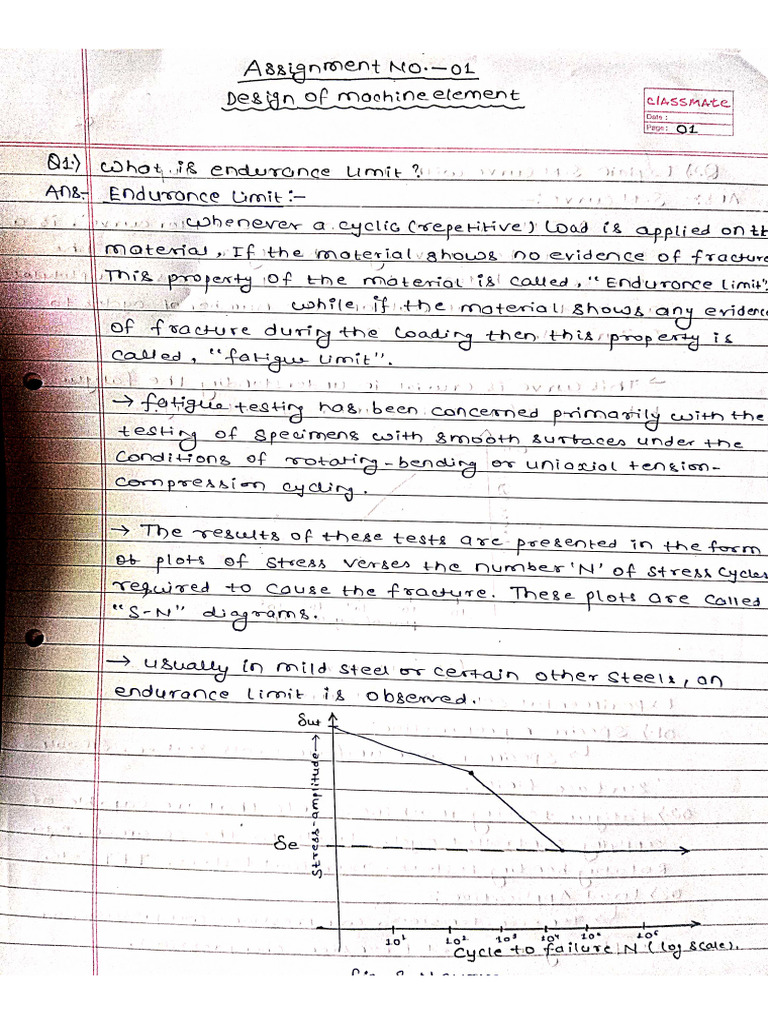 Assignment NO.-01
Design of machine element
CLASSMATE
Date :
Page : 01
Q1:) What is endurance limit?
Ans- Endurance Limit:-
Whenever a cyclic (repetitive) Load is applied on th
material, If the material shows no evidence of fracture
This property of the material is called, "Endurance limit".
while if the material shows any evidenc
of fracture during the loading then this property is
called, "fatigue limit".
→ fatigue testing has been concerned primarily with the
testing of specimens with smooth surfaces under the
conditions of rotating-bending or unioxial tension-
compression cycling.
→ The results of these tests are presented in the form
of plots of stress verses the number 'N' of stress cycles
required to cause the fracture. These plots are called
"S-N" diagrams.
→ usually in mild steel or certain other steels, an
endurance limit is observed.
Sut
Stress-amplitude→
Se
10¹ 10² 10³ 10⁴ 10⁵ 10⁶
Cycle to failure N (log scale).